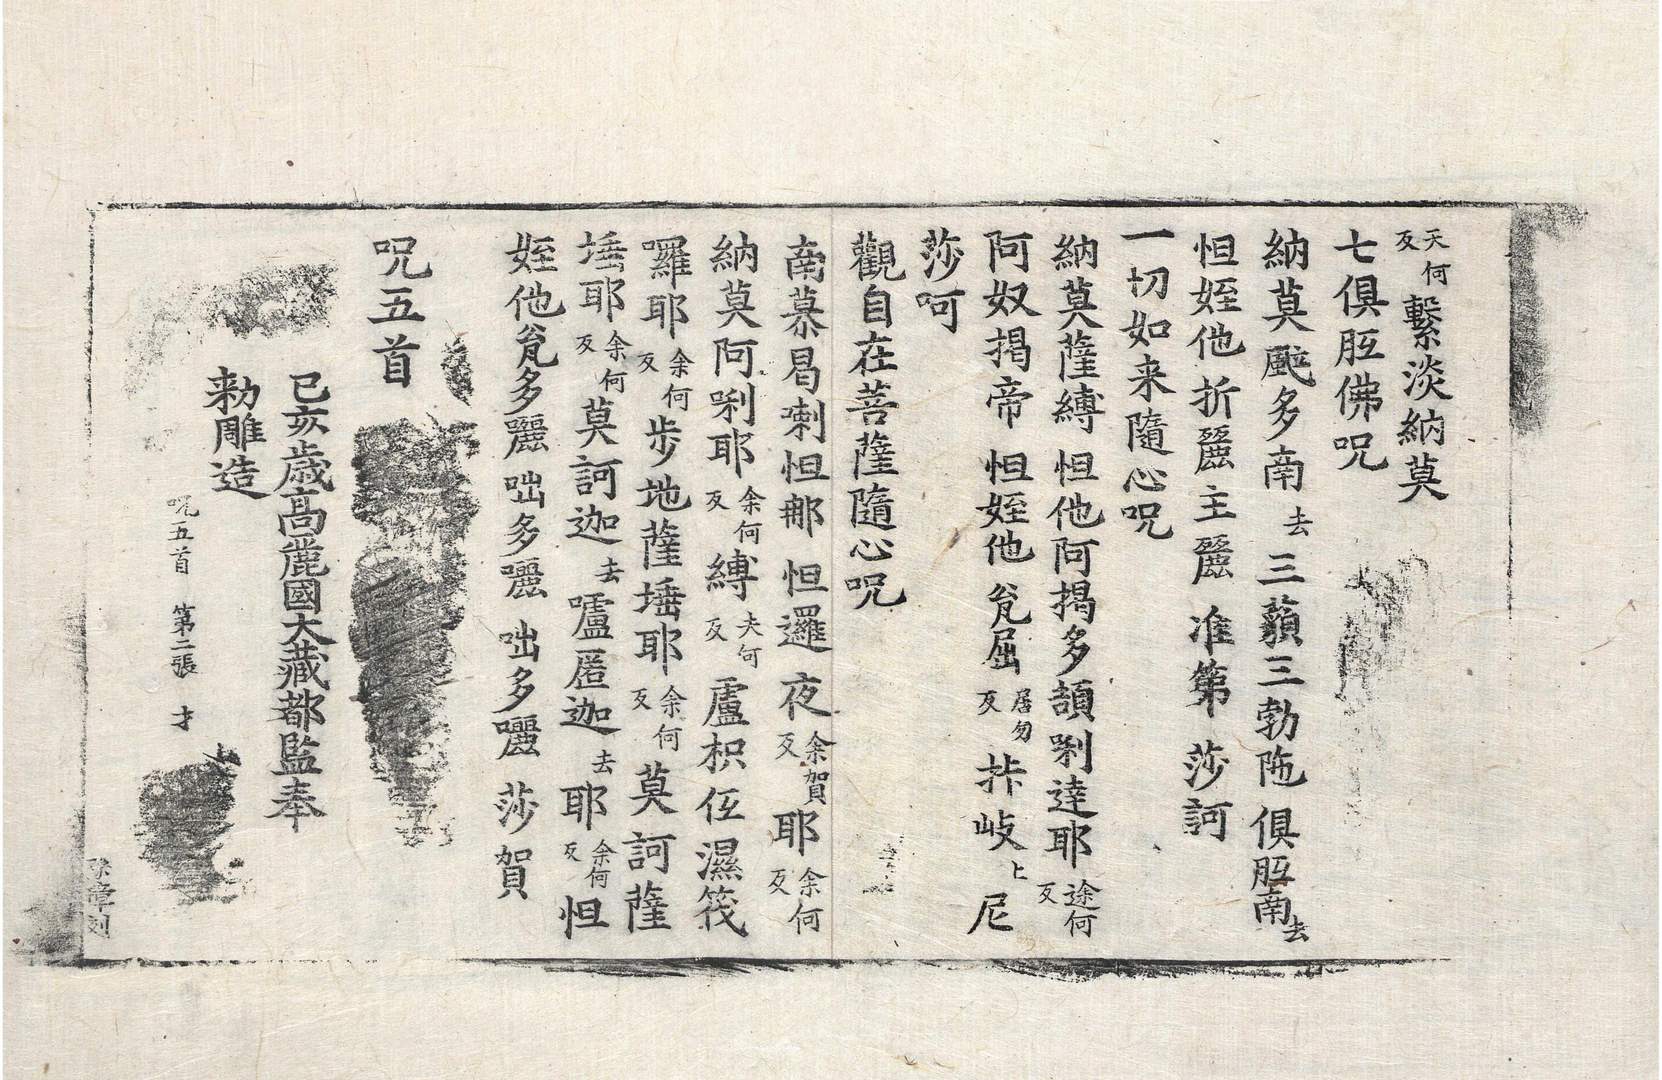 天何反繫淡納莫
七俱胝佛呪
納莫颯多南去三藐三勃陁俱胝南去
怛姪他折麗主麗准第莎訶
一切如来隨心呪
納莫薩縛怛他阿揭多頞唎逹耶途何反
阿奴揭帝怛姪他瓮屈居勿反抺岐上尼
莎呵
觀自在菩薩隨心呪
南慕曷喇怛那怛邏夜余賀反耶余何反
納莫阿唎耶余何反縛夫何反盧枳伍濕筏
囉耶余何反步地薩埵耶余何反莫訶薩
埵耶余何反莫訶迦去嚧匿迦去耶余何反怛
姪他瓮多囇咄多囇咄多囇莎賀
呪五首
己亥歳高麗國大藏都監奉
勑雕造
呪五首 第二張 才
章刻